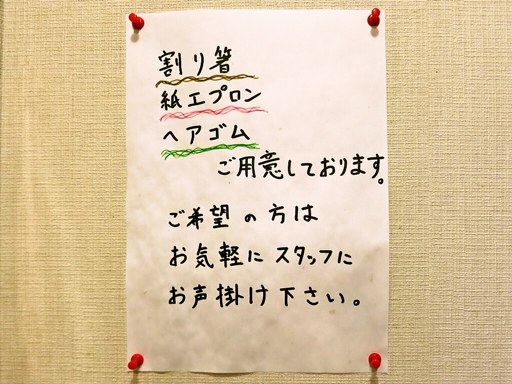 割り箸
紙エプロン
ヘアゴム
ご用意しております。
ご希望の方は
お気軽にスタッフに
お声掛け下さい。